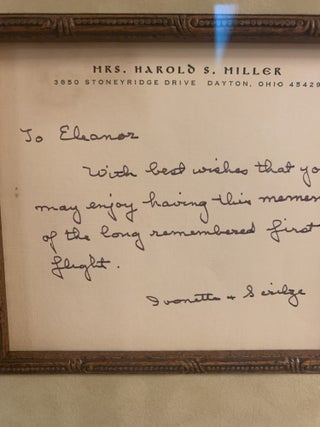 MRS. HAROLD S. MILLER
3850 STONEYRIDGE DRIVE DAYTON, OHIO 45429
To Eleanor
With best wishes that yo
may enjoy having this memen
of the long remembered first
flight.
Ivonette +